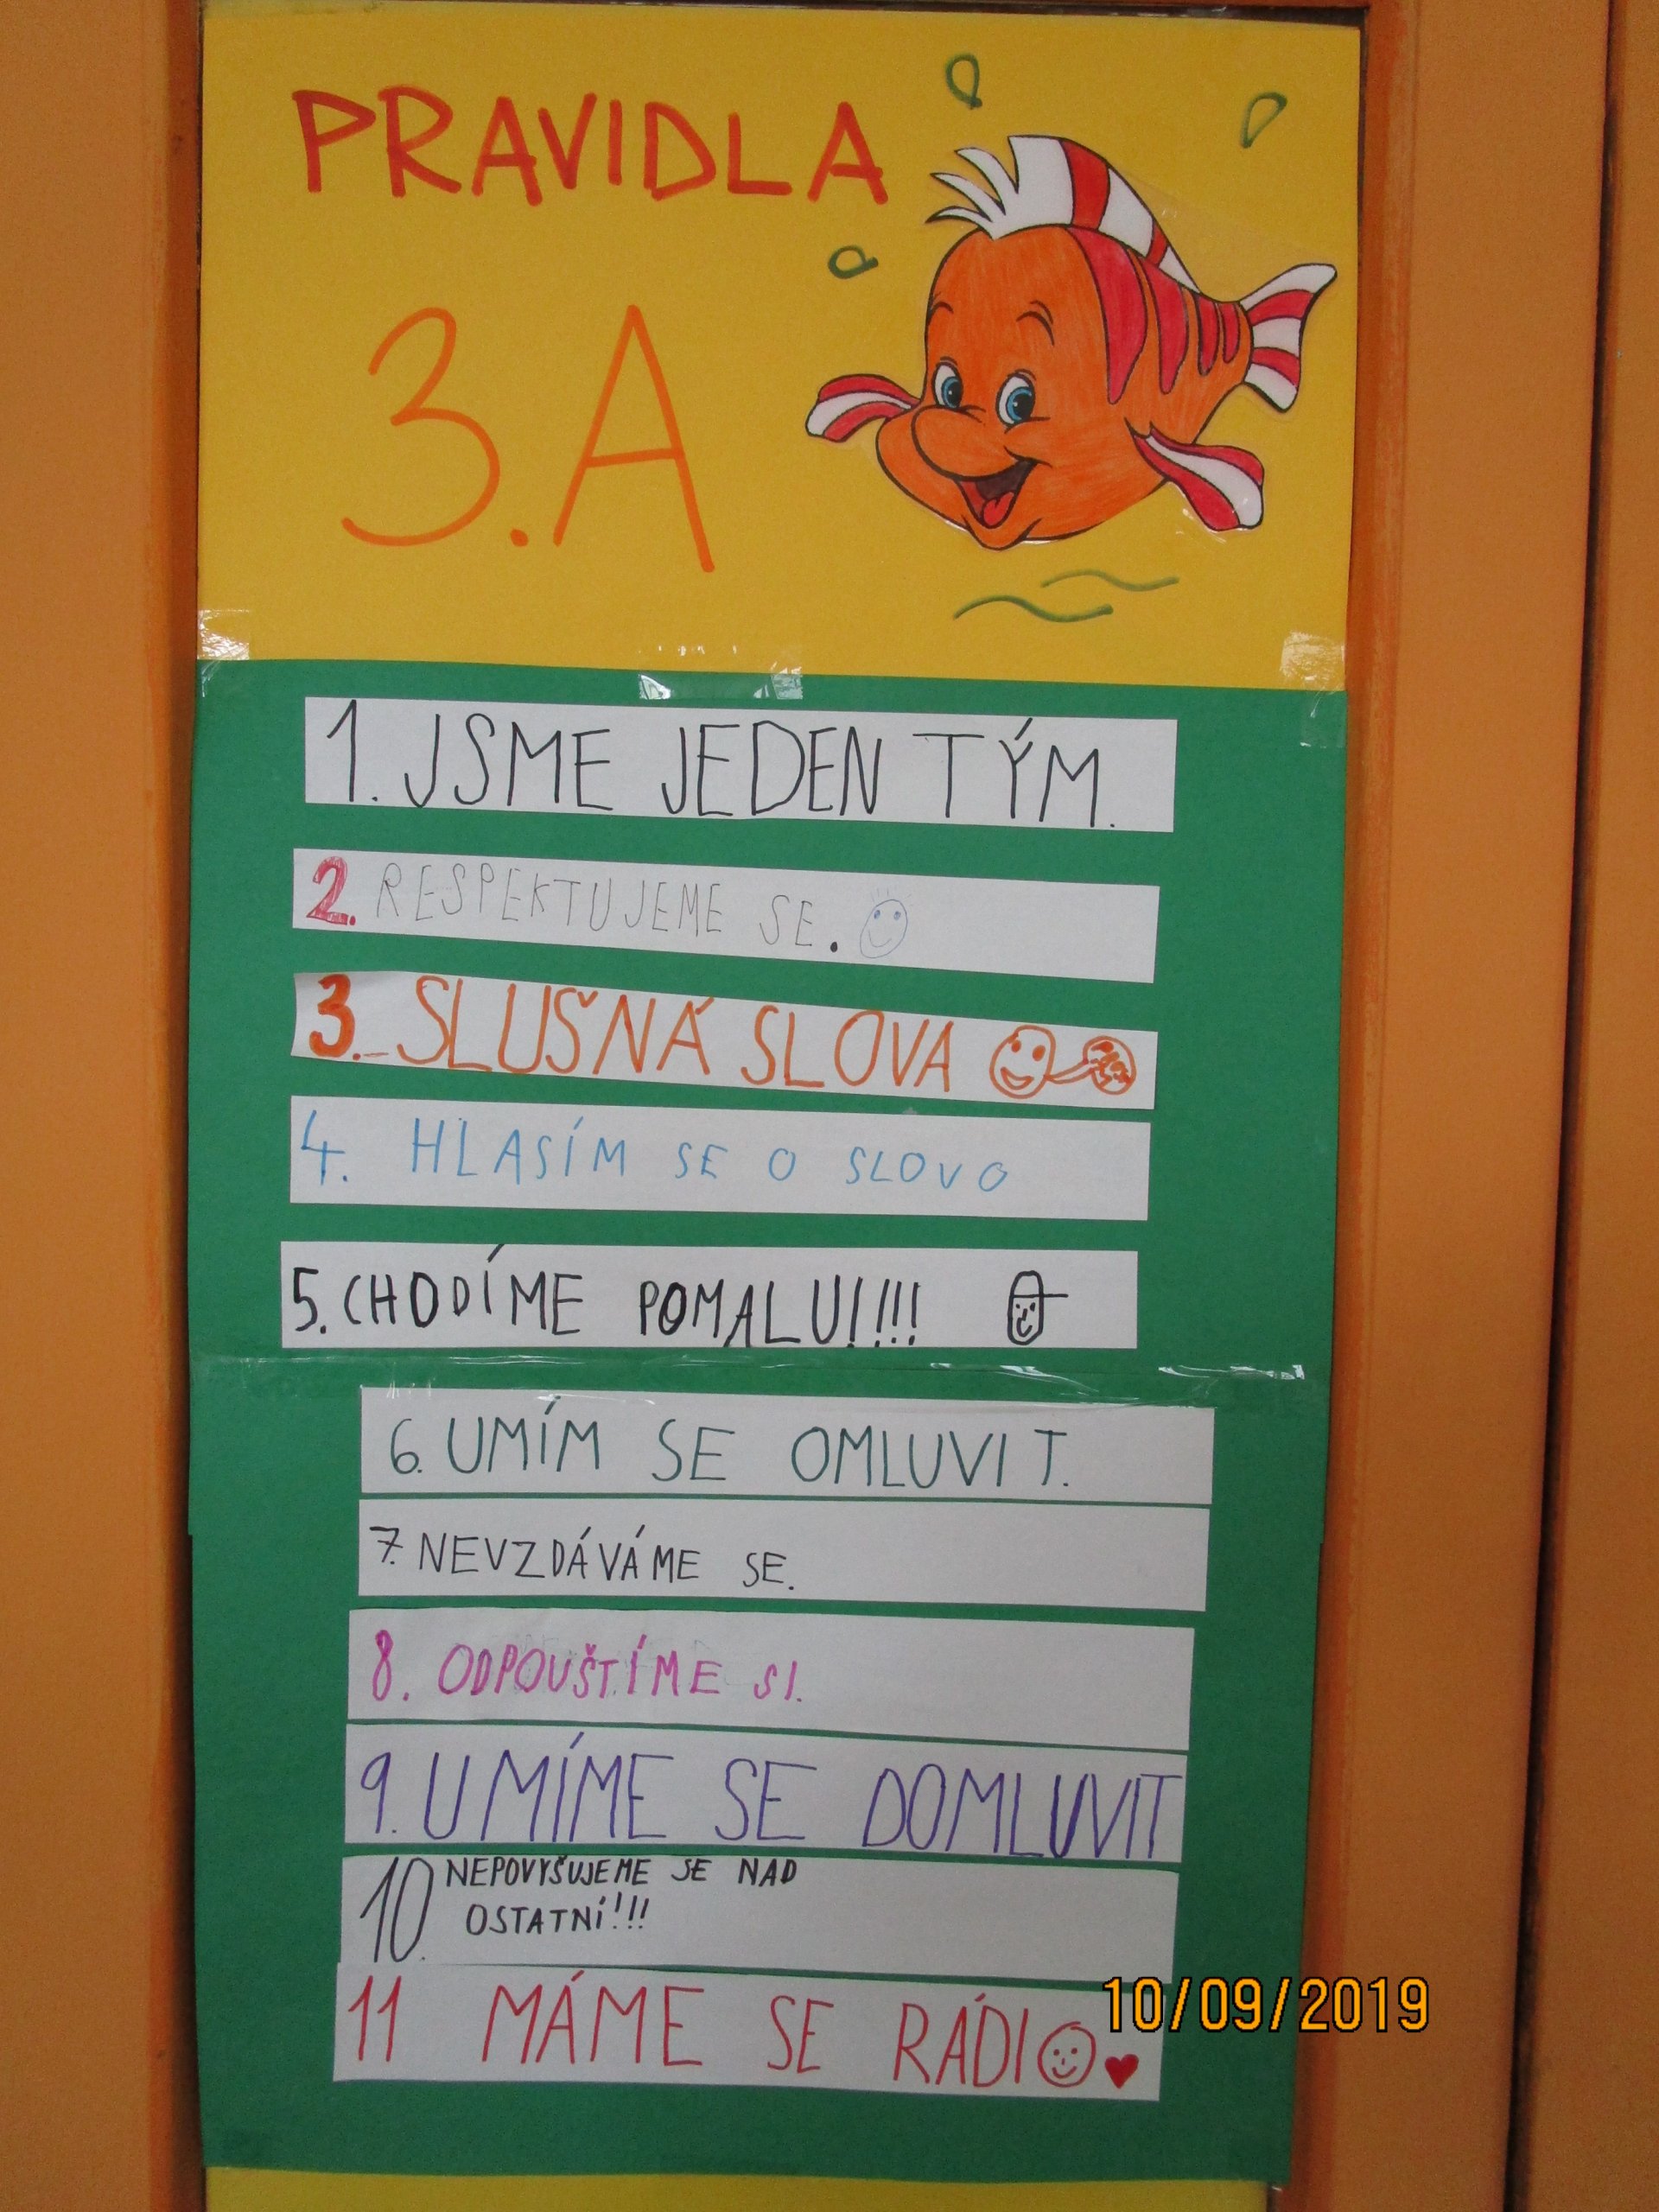 PRAVIDLA
3.A
1. JSME JEDEN TÝM.
2. RESPEKTUJEME SE.
3. SLUŠNÁ SLOVA
4. HLASÍM SE O SLOVO
5. CHODÍME POMALU!!!!
6. UMÍM SE OMLUVIT.
7. NEVZDÁVÁME SE.
8. ODPOUŠTÍME SI.
9. UMÍME SE DOMLUVIT
10. NEPOVYŠUJEME SE NAD
OSTATNÍ!!!
11 MÁME SE RÁDI
10/09/2019